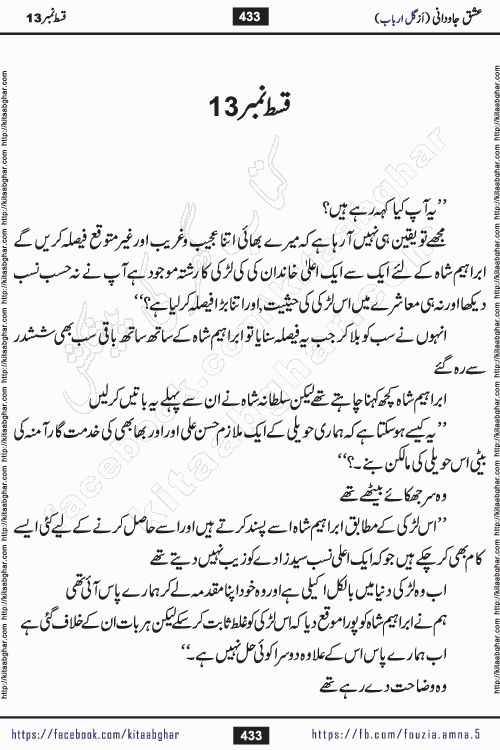 عشق جاودانی (از گل ارباب) 433 قسط نمبر 13
قسط نمبر 13
’’یہ آپ کیا کہہ رہے ہیں؟
مجھے تو یقین ہی نہیں آ رہا ہے کہ میرے بھائی اتنا عجیب و غریب اور غیر متوقع فیصلہ کریں گے
ابراہیم شاہ کے لئے ایک سے ایک اعلیٰ خاندان کی کی لڑکی کا رشتہ موجود ہے آپ نے نہ حسب نسب
دیکھا اور نہ ہی معاشرے میں اس لڑکی کی حیثیت, اور اتنا بڑا فیصلہ کر لیا ہے؟‘‘
انہوں نے سب کو بلا کر جب یہ فیصلہ سنایا تو ابراہیم شاہ کے ساتھ ساتھ باقی سب بھی ششدر
سے رہ گئے
ابراہیم شاہ کچھ کہنا چاہتے تھے لیکن سلطانہ شاہ نے ان سے پہلے یہ باتیں کر لیں
’’یہ کیسے ہو سکتا ہے کہ ہماری حویلی کے ایک ملازم حسن علی اور اور بھابھی کی خدمت گار آمنہ کی
بیٹی اس حویلی کی مالکن بنے۔؟‘‘
وہ سر جھکائے بیٹھے تھے
’’اس لڑکی کے مطابق ابراہیم شاہ اسے پسند کرتے ہیں اور اسے حاصل کرنے کے لیے کئی ایسے
کام بھی کر چکے ہیں جو کہ ایک اعلی نسب سید زادے کو زیب نہیں دیتے تھے
اب وہ لڑکی دنیا میں بالکل اکیلی ہے اور وہ خود اپنا مقدمہ لے کر ہمارے پاس آئی تھی
ہم نے ابراہیم شاہ کو پورا موقع دیا کہ اس لڑکی کو غلط ثابت کر سکے لیکن ہر بات ان کے خلاف گئی ہے
اب ہمارے پاس اس کے علاوہ دوسرا کوئی حل نہیں ہے۔‘‘
وہ وضاحت دے رہے تھے
https://facebook.com/kitaabghar 433 https://fb.com/fouzia.amna.5
http://kitaabghar.com http://kitaabghar.com http://kitaabghar.com http://kitaabghar.com http://kitaabghar.com http://kitaabghar.com
http://kitaabghar.com http://kitaabghar.com http://kitaabghar.com http://kitaabghar.com http://kitaabghar.com http://kitaabghar.com
کتاب گھر کی پیشکش
facebook.com/kitaabghar
kitaabghar